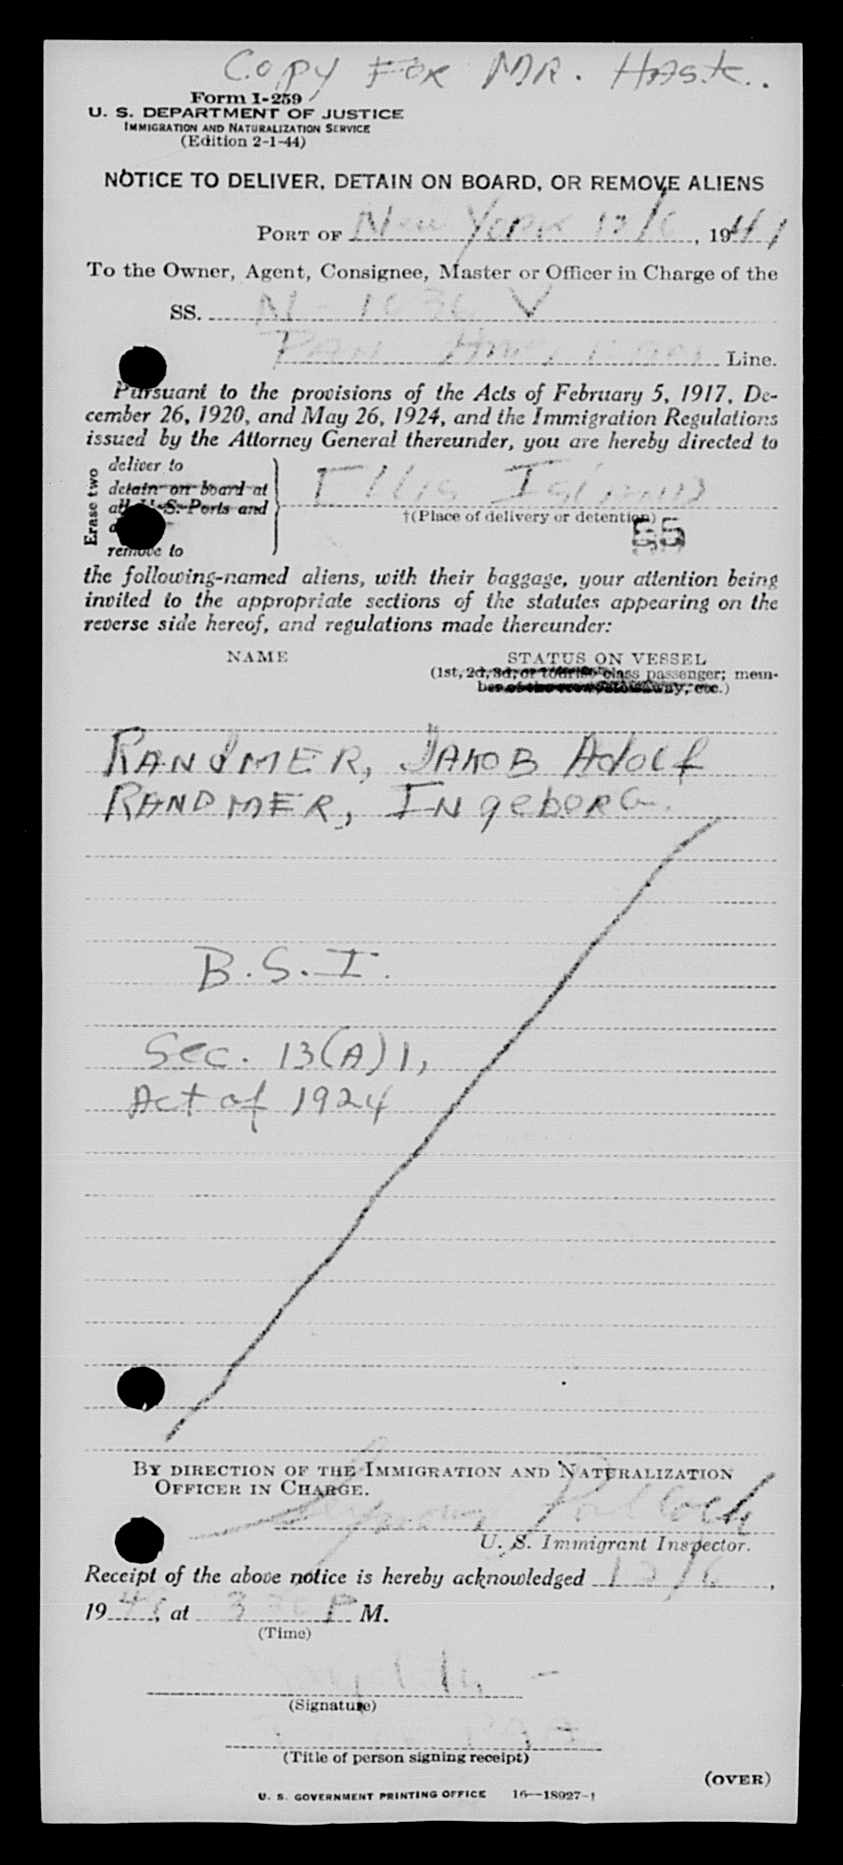 Copy FOR MR. 
Form I-259
U. S. DEPARTMENT OF JUSTICE
IMMIGRATION AND NATURALIZATION SERVICE
(Edition 2-1-44)
NOTICE TO DELIVER, DETAIN ON BOARD, OR REMOVE ALIENS
PORT OF New York 12/6, 19
To the Owner, Agent, Consignee, Master or Officer in Charge of the
SS. N-1036 V
PAN Line.
Pursuant to the provisions of the Acts of February 5, 1917, De-
cember 26, 1920, and May 26, 1924, and the Immigration Regulations
issued by the Attorney General thereunder, you are hereby directed to
Erase two
deliver to
detain on board at
all U.S. Ports and
remove to
Ellis Island
†(Place of delivery or detention)
55
the following-named aliens, with their baggage, your attention being
invited to the appropriate sections of the statutes appearing on the
reverse side hereof, and regulations made thereunder:
NAME STATUS ON VESSEL
(1st, 2d, 3d, or tourist class passenger; mem-
ber of the crew, stowaway, etc.)
RANDMER, JAKOB Adolf
RANDMER, INgeborG.
B.S.I.
Sec. 13(A)1,
Act of 1924
BY DIRECTION OF THE IMMIGRATION AND NATURALIZATION
OFFICER IN CHARGE.
Seymour Pollock
U. S. Immigrant Inspector.
Receipt of the above notice is hereby acknowledged 12/6,
19 48, at 3 30 P M.
(Time)
(Signature)
(Title of person signing receipt)
(OVER)
U. S. GOVERNMENT PRINTING OFFICE 16—18927-1